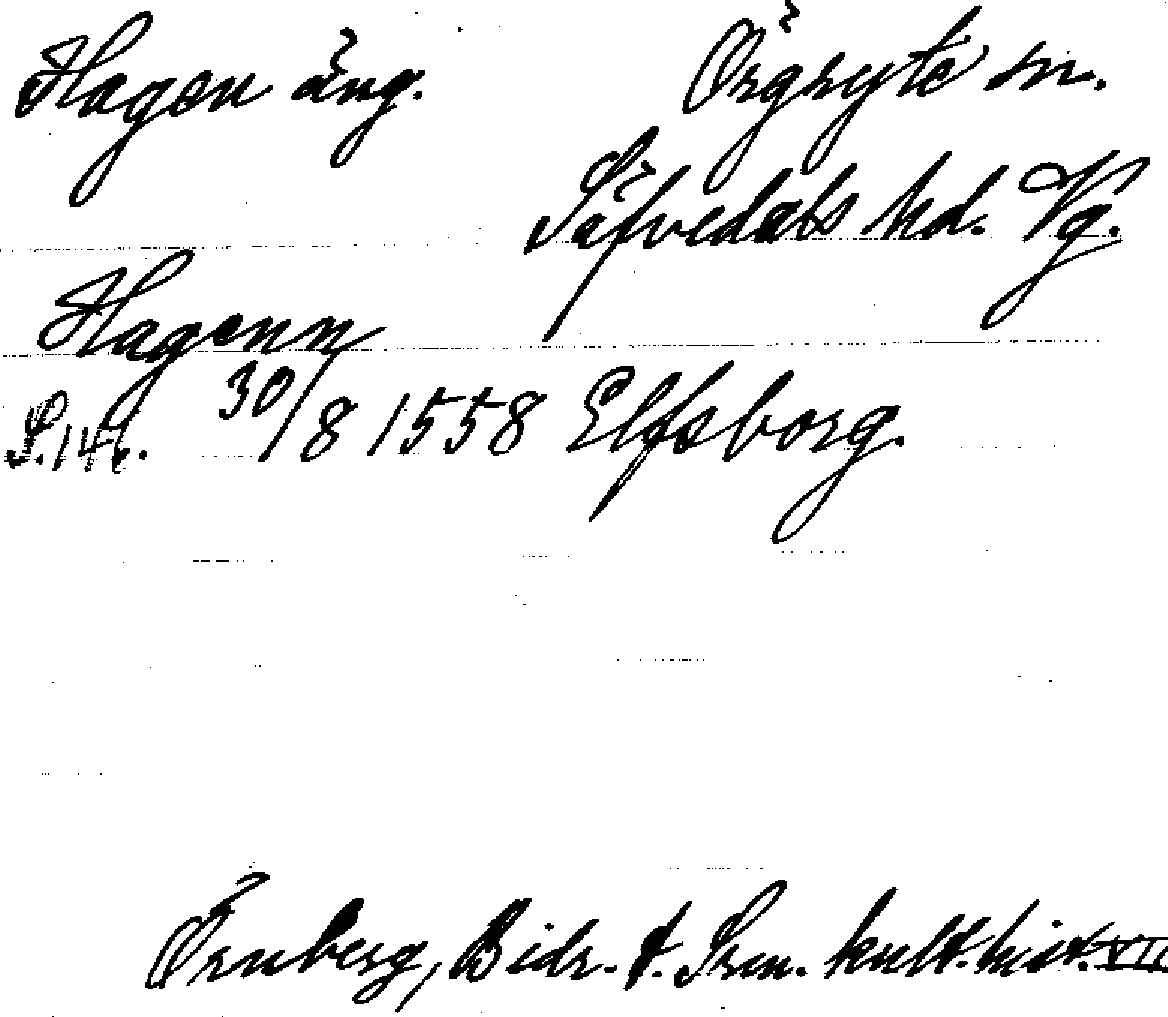 Hagen äng. Örgryte sn.
Säfvedals hd. Vg.
Hagenn
S. 146. 30/8 1558 Elfsborg.
Örnberg, Bidr. t. Sven. kult. hist. VII